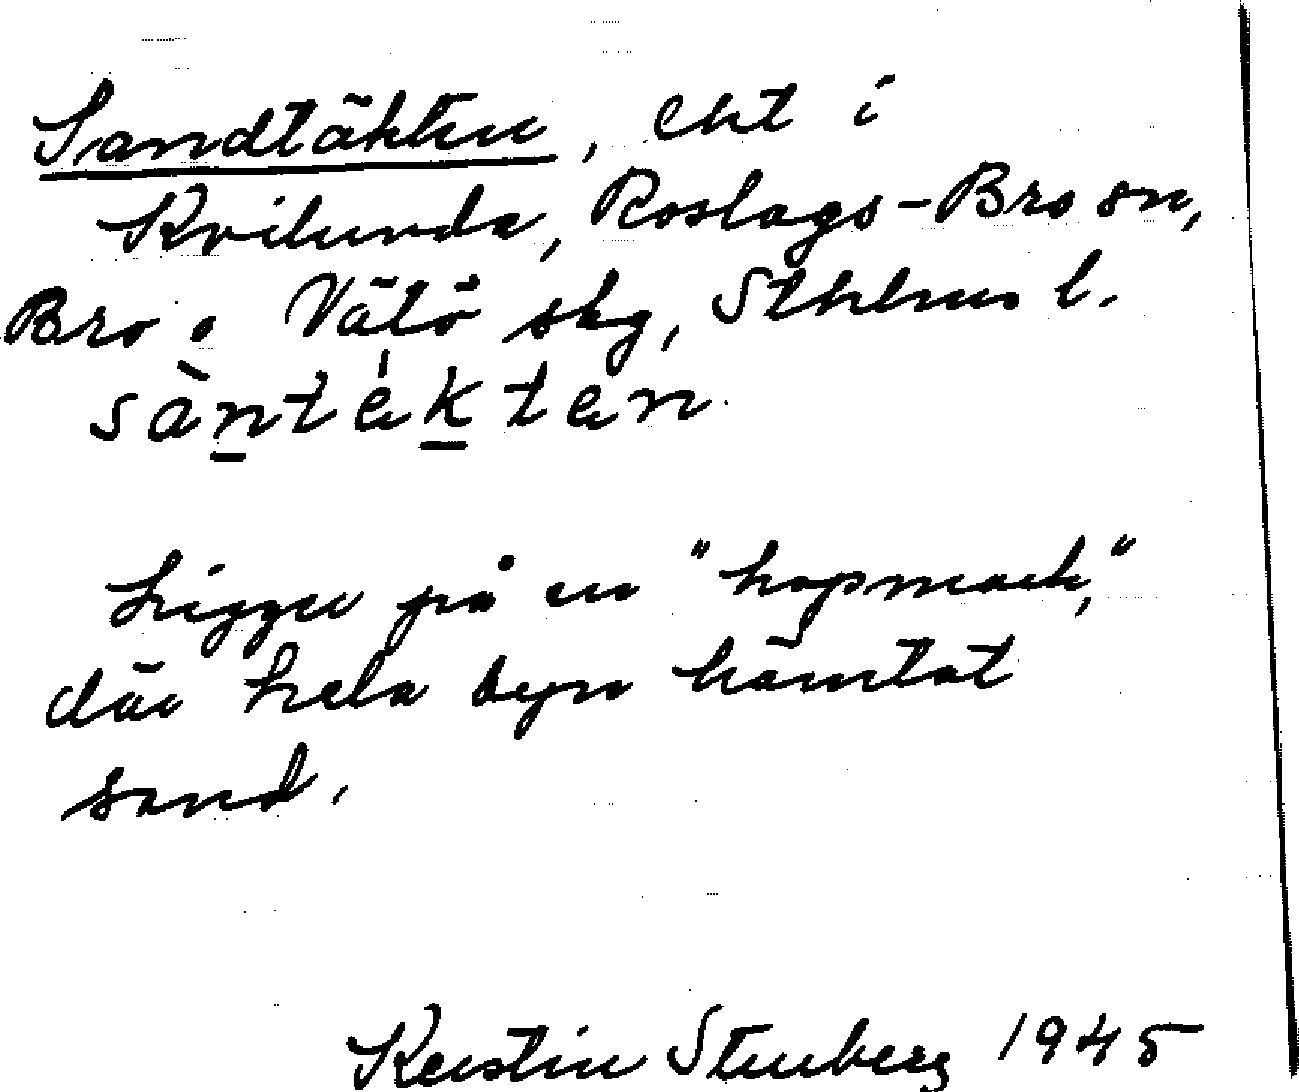 Sandtäkten, ent i
Kvilunda, Roslags-Bro sn,
Bro o Vätö skg, Sthlms l.
sàntèkten
Ligger på en "hopmark,"
där hela byn hämtat
sand.
Kerstin Stenberg 1945